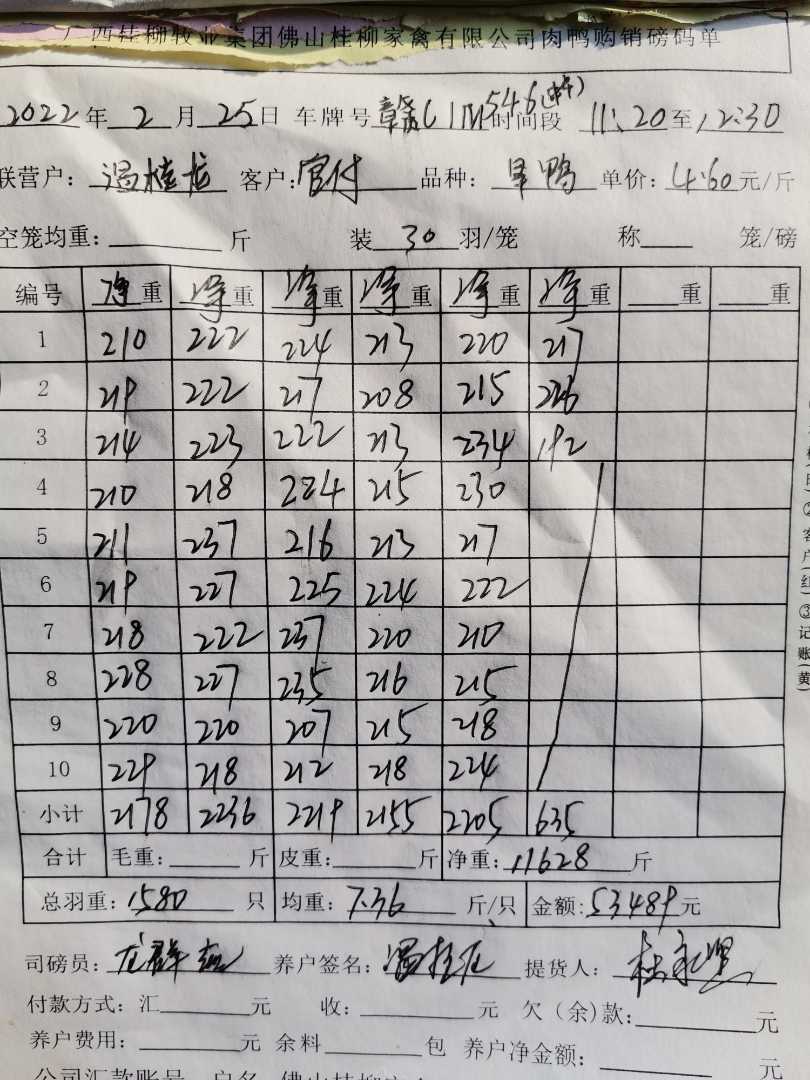 广西桂柳牧业集团佛山桂柳家禽有限公司肉鸭购销磅码单
2022年 2 月 25 日 车牌号 赣C1M546(中午) 时间段 11:20 至 12:30
联营户: 温桂龙 客户: 官付 品种: 旱鸭 单价: 4.60 元/斤
空笼均重: 斤 装 30 羽/笼 称 笼/磅
编号 净重 净重 净重 净重 净重 净重 重 重
1 210 222 224 213 220 217
2 219 222 217 208 215 226
3 214 223 222 213 234 192
4 210 218 224 215 230
5 211 237 216 213 217
6 219 227 225 224 222
7 218 222 237 220 210
8 228 227 235 216 215
9 220 220 207 215 218
10 229 218 212 218 224
小计 2178 2236 2219 2155 2205 635
合计 毛重: 斤 皮重: 斤 净重: 11628 斤
总羽重: 1580 只 均重: 7.36 斤/只 金额: 53489 元
司磅员: 龙群 养户签名: 温桂龙 提货人:
付款方式: 汇 元 收: 元 欠(余)款: 元
养户费用: 元 余料 包 养户净金额: 元
公司汇款账号 户名 佛山桂柳
②客户(红)③记账(黄)